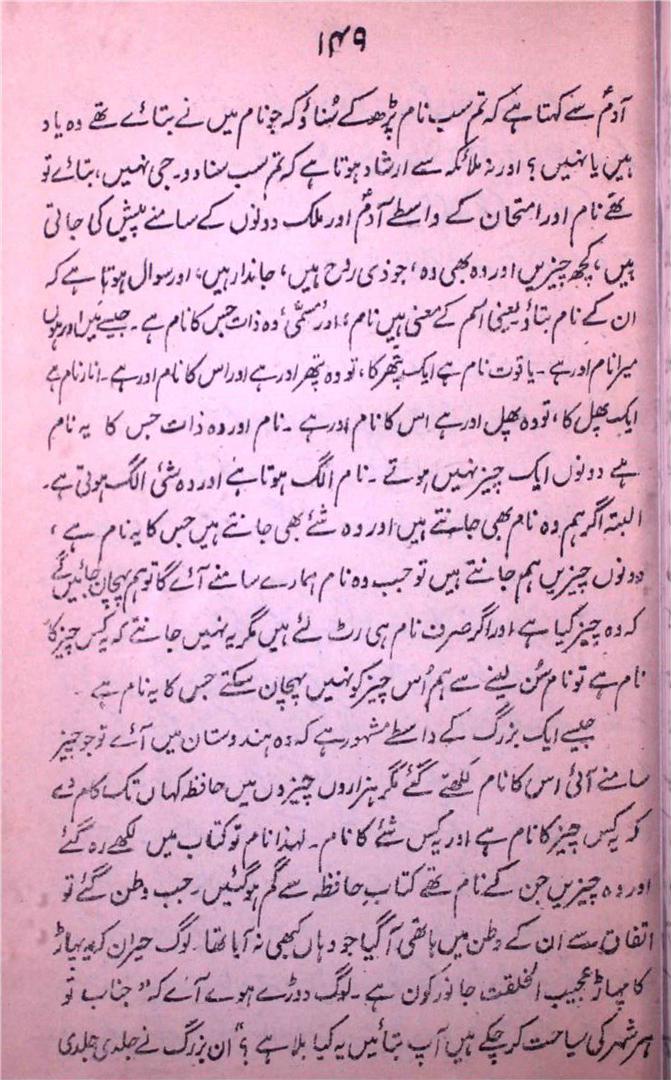 ۱۴۹
آدمؑ سے کہتا ہے کہ تم سب نام پڑھ کے سُناؤ کہ جو نام میں نے بتائے تھے وہ یاد
ہیں یا نہیں؟ اور نہ ملائکہ سے ارشاد ہوتا ہے کہ تم سب سنا دو۔ جی نہیں، بتائے تو
تھے نام اور امتحان کے واسطے آدمؑ اور ملک دونوں کے سامنے پیش کی جاتی
ہیں، کچھ چیزیں اور وہ بھی وہ، جو ذی روح ہیں، جاندار ہیں، اور سوال ہوتا ہے کہ
ان کے نام بتاؤ یعنی اسم کے معنی ہیں نام، اور مسمّٰی، وہ ذات جس کا نام ہے۔ جیسے میں اور ہوں
میرا نام اور ہے۔ یاقوت نام ہے ایک پتھر کا، تو وہ پتھر اور ہے اور اس کا نام اور ہے۔ انار نام ہے
ایک پھل کا، تو وہ پھل اور ہے اس کا نام اور ہے۔ نام اور وہ ذات جس کا یہ نام
ہے دونوں ایک چیز نہیں ہوتے۔ نام الگ ہوتا ہے اور وہ شئی الگ ہوتی ہے۔
البتہ اگر ہم وہ نام بھی جانتے ہیں اور وہ شئے بھی جانتے ہیں جس کا یہ نام ہے،
دونوں چیزیں ہم جانتے ہیں تو جب وہ نام ہمارے سامنے آئے گا تو ہم پہچان جائیں گے
کہ وہ چیز کیا ہے اور اگر صرف نام ہی رٹ لئے ہیں مگر یہ نہیں جانتے کہ یہ کس چیز کا
نام ہے تو نام سُن لینے سے ہم اُس چیز کو نہیں پہچان سکتے جس کا یہ نام ہے۔
جیسے ایک بزرگ کے واسطے مشہور ہے کہ وہ ہندوستان میں آئے تو جو چیز
سامنے آئی اس کا نام لکھتے گئے مگر ہزاروں چیزوں میں حافظہ کہاں تک کام دے
کہ یہ کس چیز کا نام ہے اور یہ کس شئے کا نام۔ لہٰذا نام تو کتاب میں لکھے رہ گئے
اور وہ چیزیں جن کے نام تھے کتابِ حافظہ سے گم ہو گئیں۔ جب وطن گئے تو
اتفاق سے ان کے وطن میں ہاتھی آ گیا جو وہاں کبھی نہ آیا تھا۔ لوگ حیران کہ یہ پہاڑ
کا پہاڑ عجیب الخلقت جانور کون ہے۔ لوگ دوڑے ہوے آے کہ "جناب تو
ہر شہر کی سیاحت کر چکے ہیں آپ بتائیں یہ کیا بلا ہے؟" ان بزرگ نے جلدی جلدی